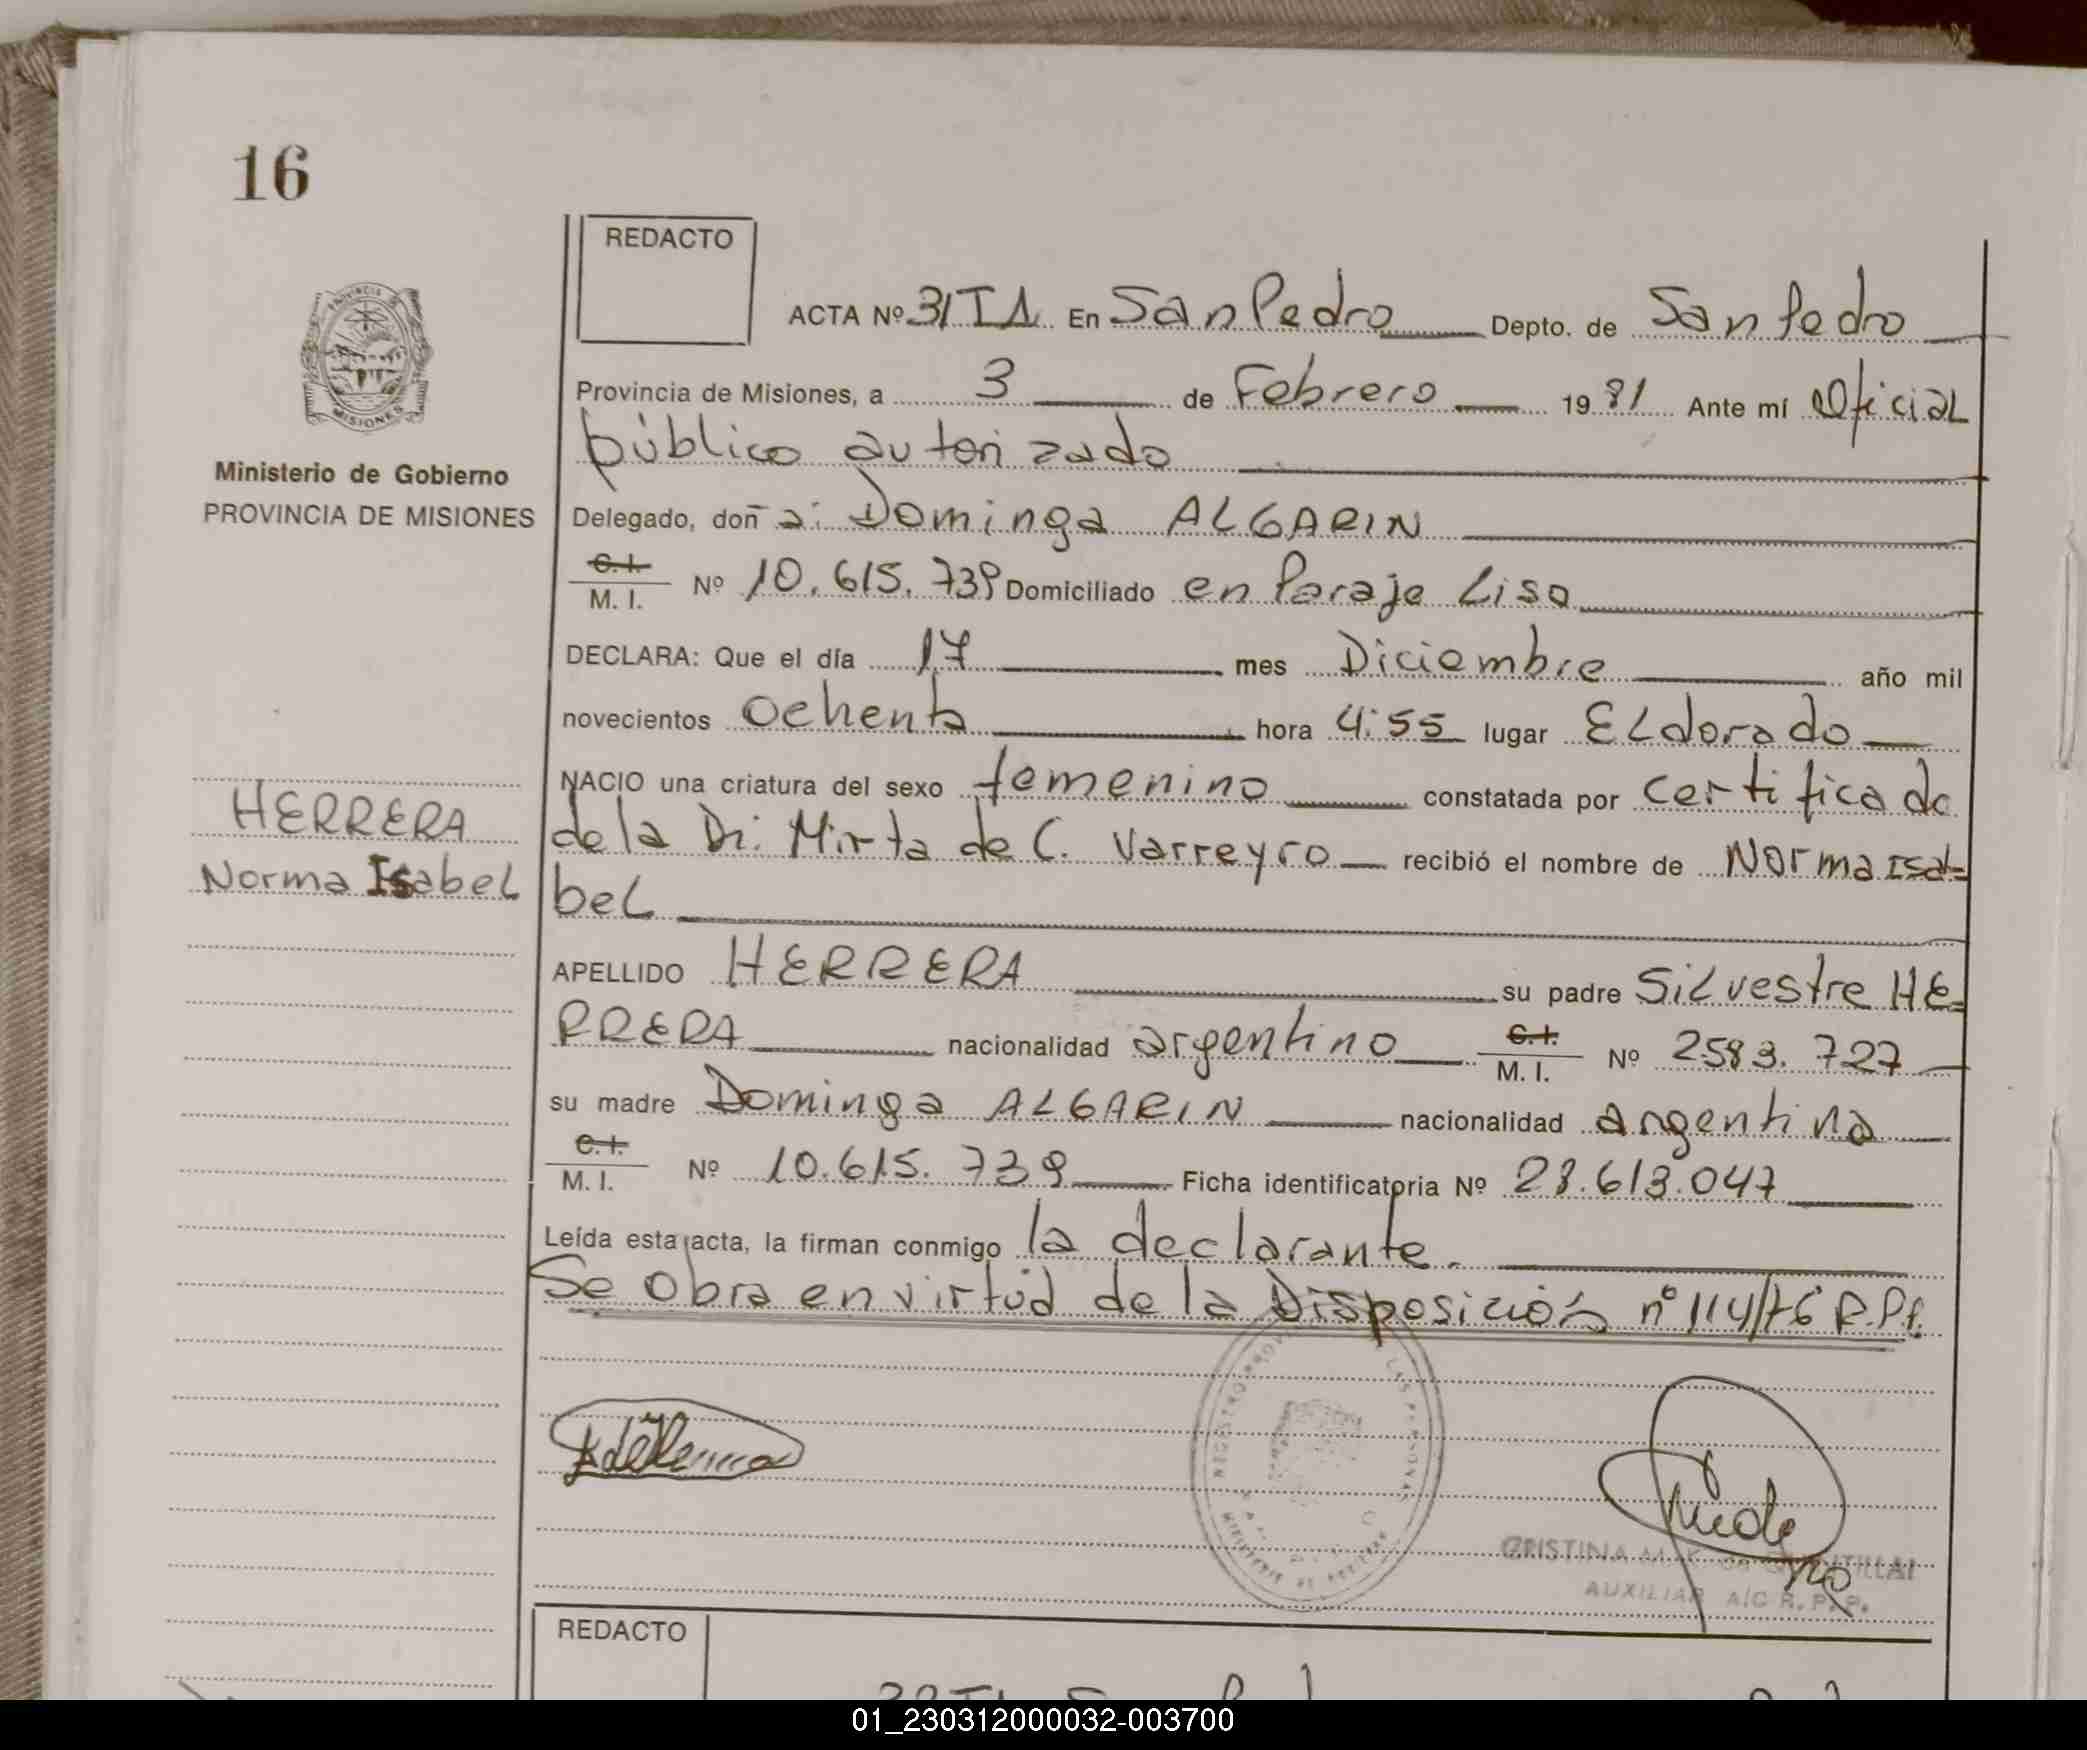 16
REDACTO
PROVINCIA
MISIONES
Ministerio de Gobierno
PROVINCIA DE MISIONES
ACTA Nº 31TI En San Pedro Depto. de San Pedro
Provincia de Misiones, a 3 de Febrero 1981 Ante mí Oficial
público autorizado
Delegado, doña: Dominga ALGARIN
C.I. M.I. Nº 10.615.739 Domiciliado en Paraje Liso
DECLARA: Que el día 17 mes Diciembre año mil
novecientos ochenta hora 4:55 lugar Eldorado
NACIO una criatura del sexo femenino constatada por certificado
de la Dr. Mirta de C. Varreyro recibió el nombre de Norma Isa=
bel
HERRERA
Norma Isabel
APELLIDO HERRERA su padre Silvestre HE=
RRERA nacionalidad argentino C.I. M.I. Nº 2583.727
su madre Dominga ALGARIN nacionalidad argentina
C.I. M.I. Nº 10.615.739 Ficha identificatoria Nº 28.613.047
Leída esta acta, la firman conmigo la declarante.
Se obra en virtúd de la Disposición nº 114/76 R.P.P.
CRISTINA M. K. de
AUXILIAR A/C R. P. P.
REDACTO
01_230312000032-003700